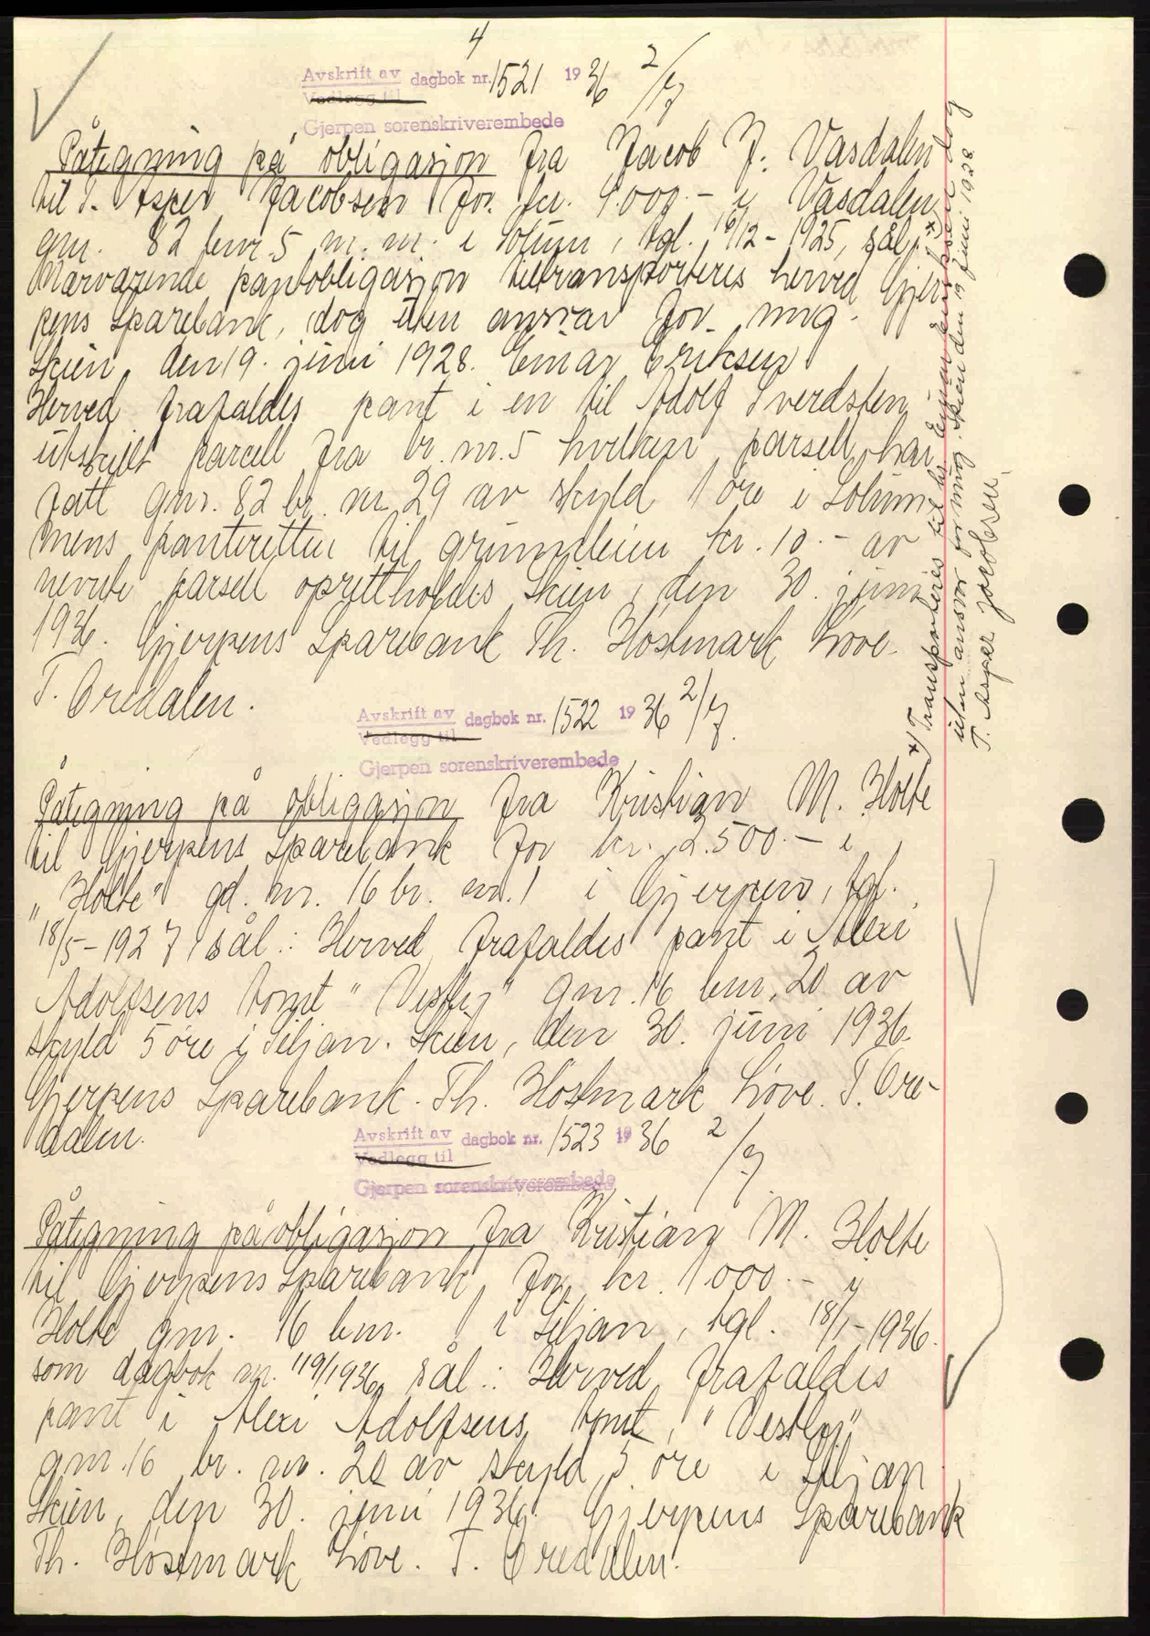 4
Avskrift av dagbok nr. 1521 1936 2/7
Vedlegg til
Gjerpen sorenskriverembede
Påtegning på obligasjon fra Jacob J. Vasdalen
til T. Asper Jacobsen for kr. 1000.- i Vasdalen
gnr. 82 bnr. 5 m. m. i Solum, tgl. 16/12-1925, sål.: *)
Nærværende pantobligasjon tiltransporteres herved Gjer-
pens Sparebank, dog uten ansvar for mig.
Skien, den 19. juni 1928. Einar Eriksen
Herved frafaldes pant i en til Adolf Sverdsten
utskilt parcell fra br. nr. 5 hvilken parsell har
fått gnr. 82 br. nr. 29 av skyld 1 øre i Solum
mens panteretten til grunnleien kr. 10.- av
nevnte parsell oprettholdes Skien, den 30. juni
1936. Gjerpens Sparebank Th. Høstmark Løve.
T. Oredalen.
*) Transporteres til hr. Einar Eriksen dog
uten ansvar for mig. Skien den 19 juni 1928
T. Asper Jacobsen.
Avskrift av dagbok nr. 1522 1936 2/7
Vedlegg til
Gjerpen sorenskriverembede
Påtegning på obligasjon fra Kristian M. Holte
til Gjerpens Sparebank for kr. 2.500.- i
"Holte" gd. nr. 16 br. nr. 1 i Gjerpen, tgl.
18/5-1927, sål.: Herved frafaldes pant i Alexi
Adolfsens tomt "Vestly" gnr. 16 bnr. 20 av
skyld 5 øre i Siljan. Skien, den 30. juni 1936.
Gjerpens Sparebank. Th. Høstmark Løve. T. Ore-
dalen.
Avskrift av dagbok nr. 1523 1936 2/7
Vedlegg til
Gjerpen sorenskriverembede
Påtegning på obligasjon fra Kristian M. Holte
til Gjerpens Sparebank for kr. 1000.- i
Holte gnr. 16 bnr. 1 i Siljan, tgl. 18/1-1936.
som dagbok nr. 119/1936, sål.: Herved frafaldes
pant i Alexi Adolfsens tomt, "Vestly"
gnr. 16 br. nr. 20 av skyld 5 øre i Siljan.
Skien, den 30. juni 1936. Gjerpens Sparebank
Th. Høstmark Løve. T. Oredalen.